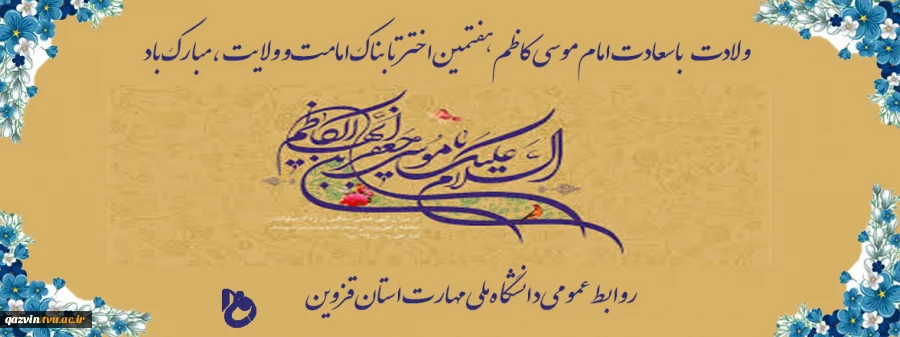 ولادت باسعادت امام موسی کاظم هفتمین اختر تابناک امامت و ولایت، مبارک باد
السلام علیک یا موسی بن جعفر ایها الکاظم
روابط عمومی دانشگاه ملی مهارت استان قزوین
qazvin.tvu.ac.ir